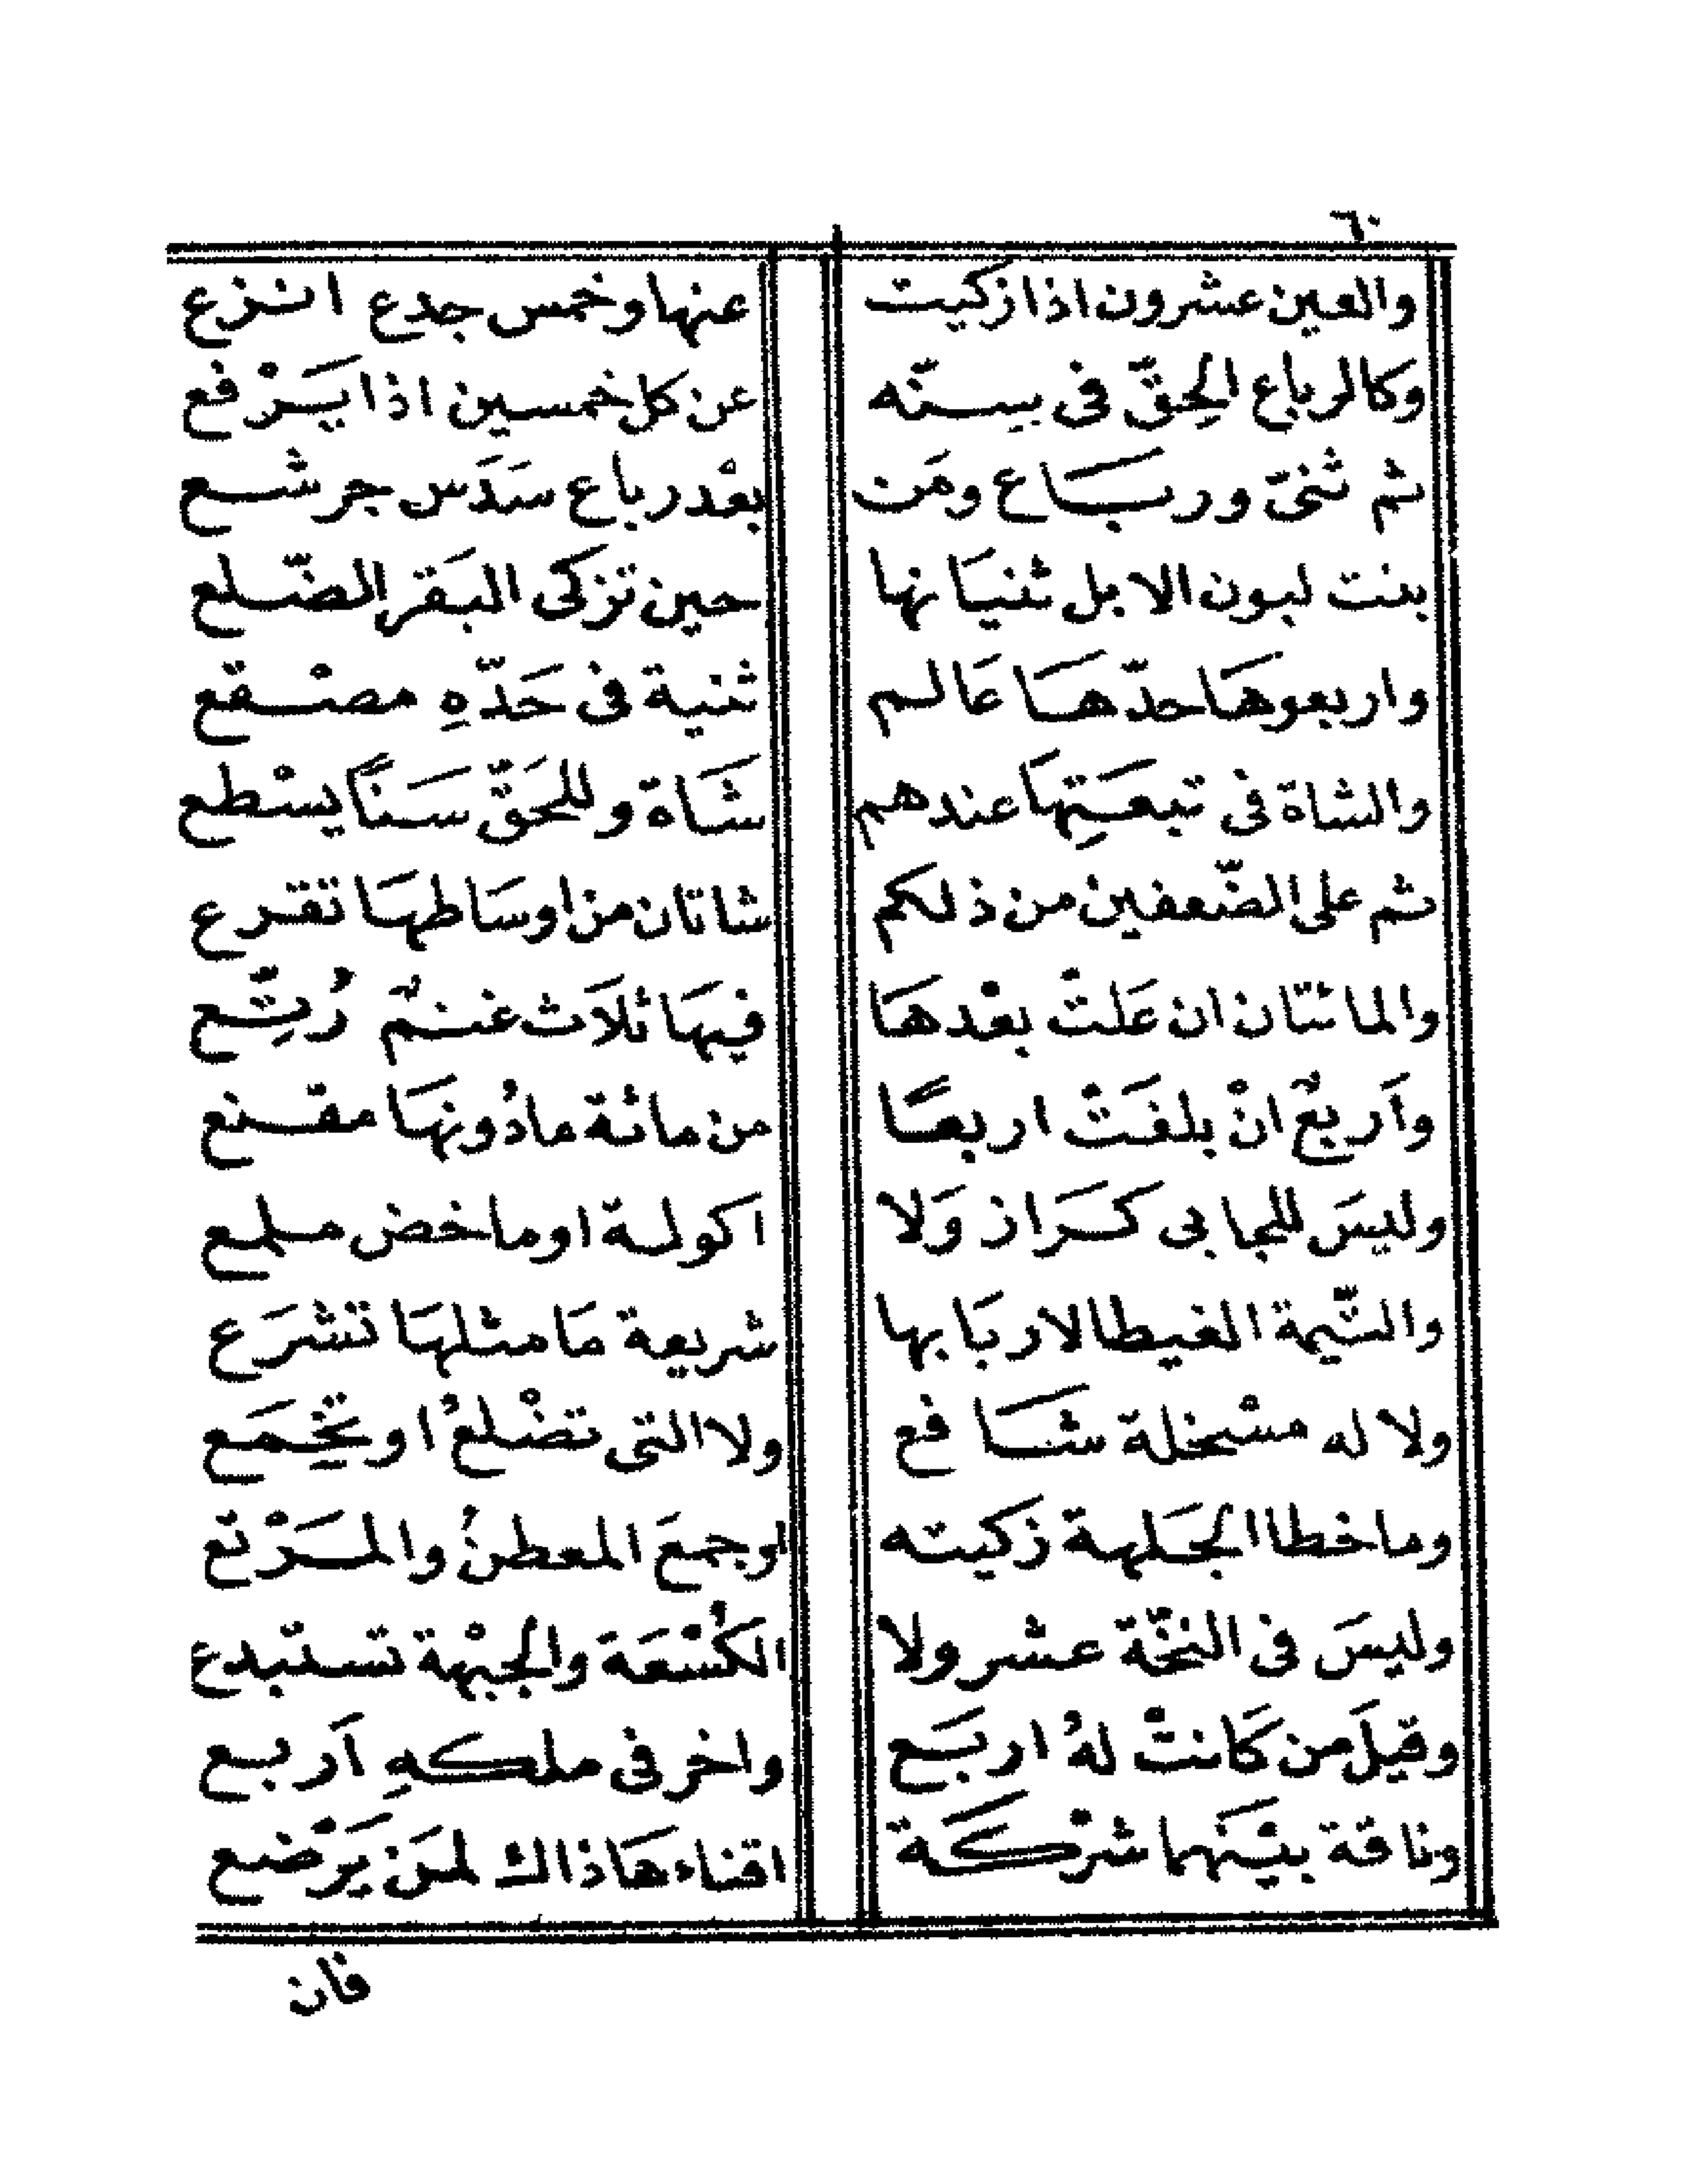 ٦٠
والعين عشرون اذا زكيت عنها وخمس جدع انزع
وكالرباع الحِقّ فى سنّه عن كل خمسين اذا يَرْفع
ثم ثنىّ ورباع ومَن بعْد رباع سَدَس جرشع
بنت لبون الابل ثنيَانها حين تزكى البَقر الضّلع
واربعوهَا حدّهَا عَالم ثنية فى حَدّهِ مصْقع
والشاة فى تبعَتِهَا عندهم شَاة وللحَقّ سَنًا يسْطع
ثم على الضّعفين من ذلكم شاتان من اوسَاطهَا تقرع
والمائتان ان عَلتْ بعْدهَا فيهَا ثلاَث غنمٌ رُتّع
وَاَربعٌ انْ بلغَتْ اربعًا من مائة مادُونهَا مقنع
وليسَ للجابى كَراز وَلا اكولة او ماخض ملمع
والتّيمة الغيطا لاربَابها شريعة مَا مثلهَا تشرَع
ولا له مسْخلة شَافع ولا التى تضْلعُ او تخِمَع
وما خطا الجَلهة زكيته لو جمعَ المعطنُ والمَرْتع
وليسَ فى النخّة عشر ولا الكُسْعَة والجبْهة تستبدع
وقيلَ من كَانتْ لهُ اربَع واخر فى ملكهِ اَربع
وناقة بيْنَهما شرْكَة اقناء هَا ذاك لمَن يَرْضع
فان